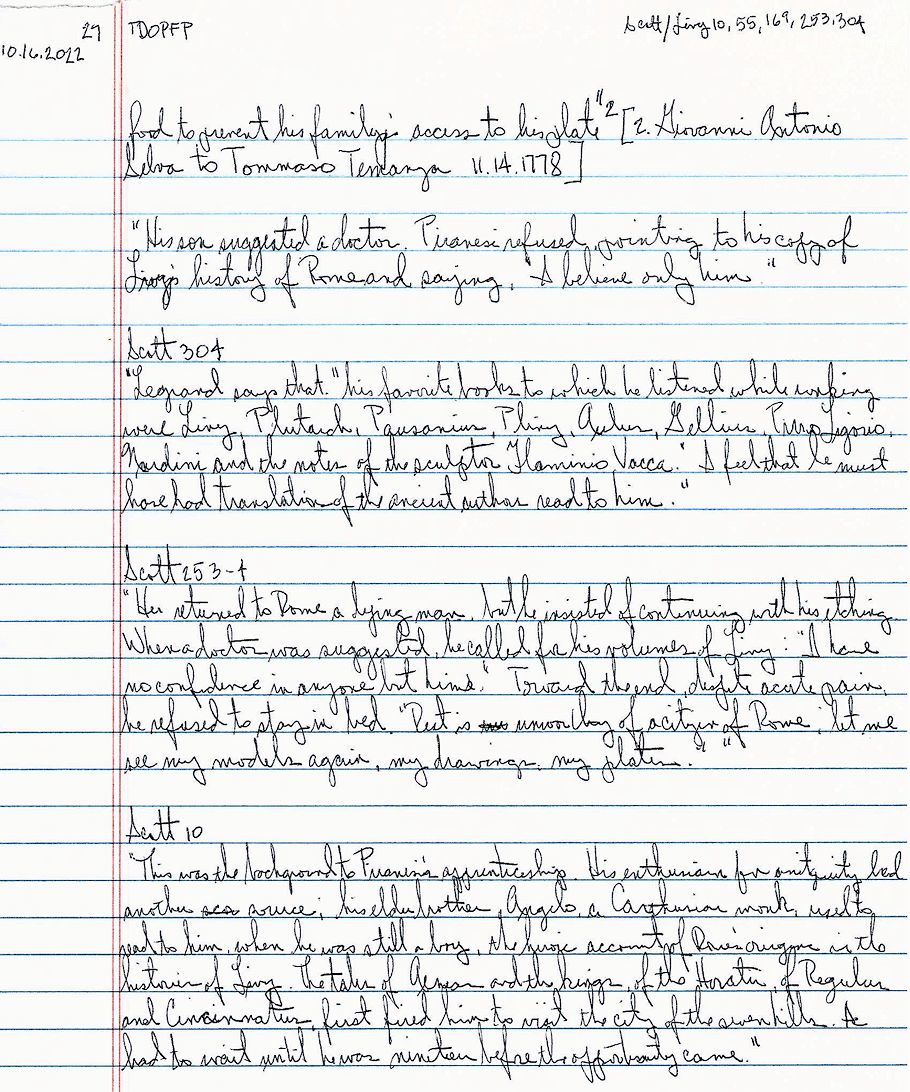 29 TDOPFP Scott/Livy 10, 55, 169, 253, 304
10.16.2022
food to prevent his family's access to his plate"2 [2. Giovanni Antonio
Selva to Tommaso Temanza 11.14.1778]
"His son suggested a doctor. Piranesi refused, pointing to his copy of
Livy's history of Rome and saying, 'I believe only him."
Scott 304
"Legrand says that "his favorite books to which he listened while working
were Livy, Plutarch, Pausanius, Pliny, Aulus, Gellius, Pirro Ligorio,
Nardini and the notes of the sculptor Flaminio Vacca." I feel that he must
have had translation of the ancient author read to him."
Scott 253-4
"He returned to Rome a dying man, but he insisted of continuing with his etching.
When a doctor was suggested, he called for his volumes of Livy: "I have
no confidence in anyone but him." Toward the end, despite acute pain,
he refused to stay in bed. "Rest is unworthy of a citizen of Rome, let me
see my models again, my drawings, my plates." "
Scott 10
"This was the background to Piranesi's apprenticeship. His enthusiasm for antiquity had
another source; his elder brother, Angelo, a Carthusian monk, used to
read to him, when he was still a boy, the heroic account of Rome's origins in the
histories of Livy. The tales of Aeneas and the kings, of the Horatii, of Regulus
and Cincinnatus, first fired him to visit the city of the seven hills. He
had to wait until he was nineteen before the opportunity came."